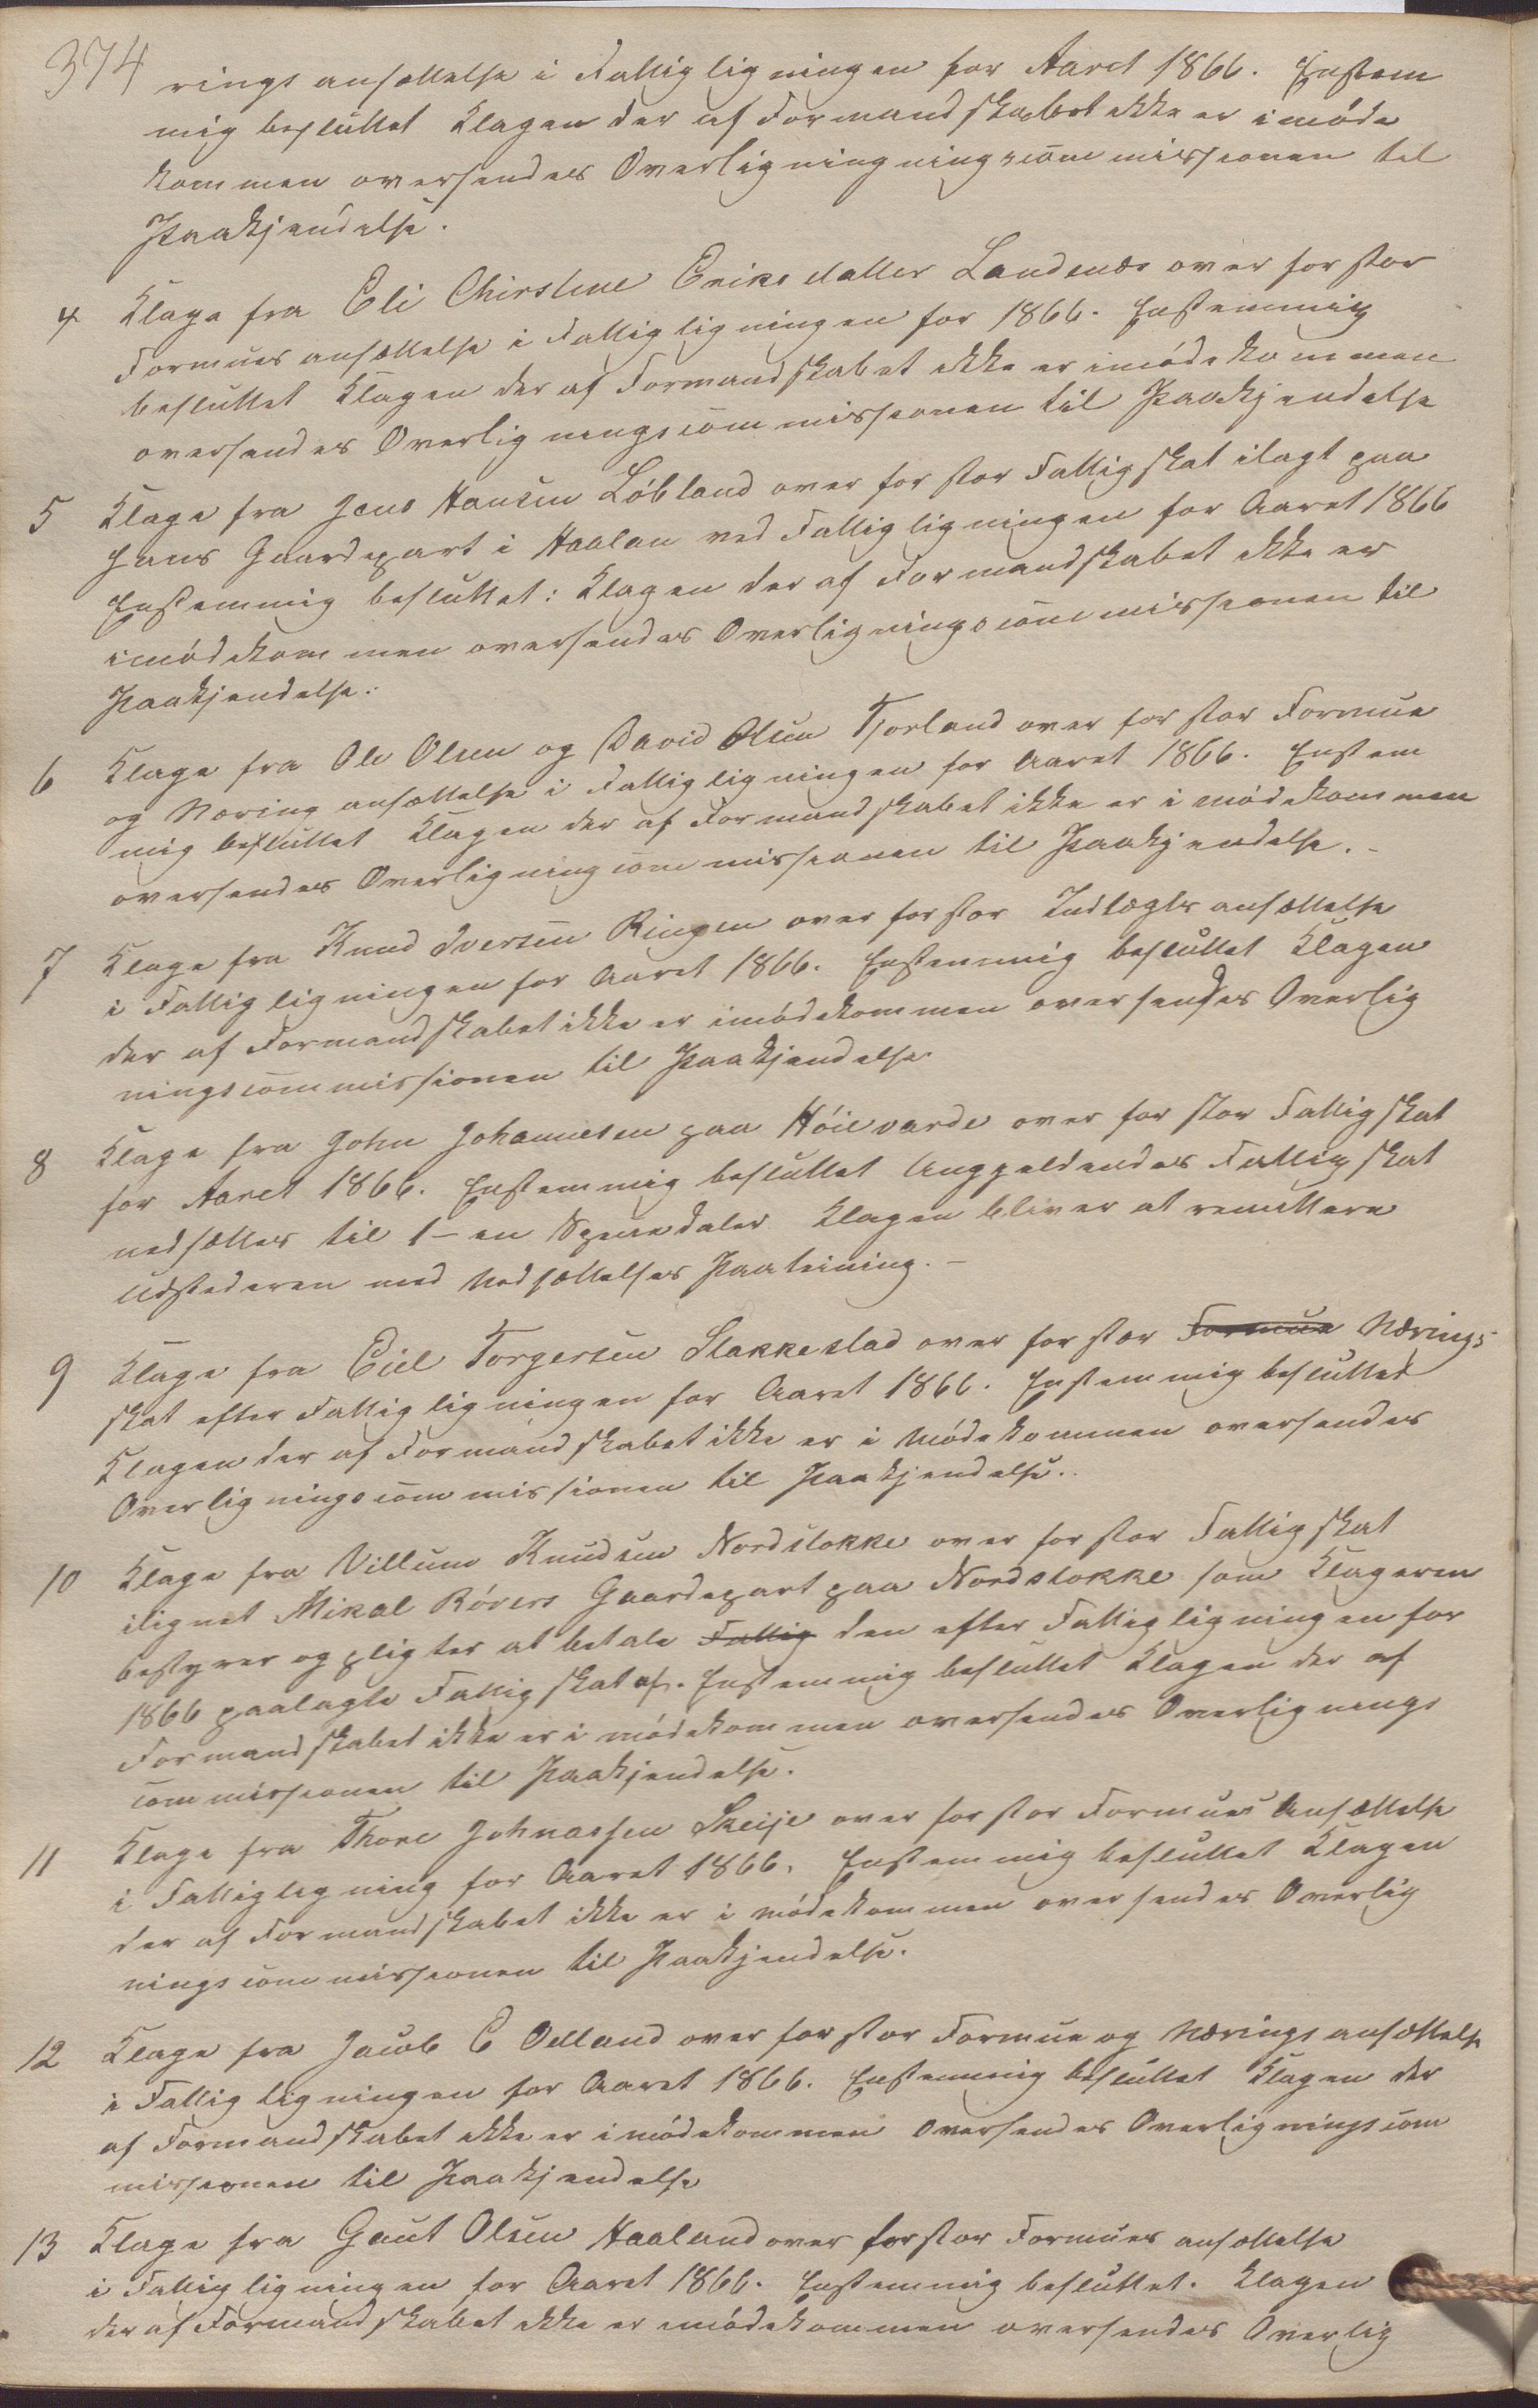 374 rings ansættelse i Fattigligningen for Aaret 1866. Enstem
mig besluttet Klagen der af Formandskabet ikke er imøde
kommen oversendes Overligningningscommissionen til
Paakjendelse.
4 Klage fra Eli Chirstine Eriksdatter Landenæs over for stor
Formues ansættelse i Fattigligningen for 1866. Enstemmig
besluttet Klagen der af Formandskabet ikke er imødekommen
oversendes Overligningscommissionen til Paakjendelse
5 Klage fra Jens Hansen Løbland over for stor Fattigskat ilagt paa
hans Gaardepart i Haalan ved Fattigligningen for Aaret 1866
Enstemmig besluttet: Klagen der af Formandskabet ikke er
imødekommen oversendes Overligningscommissionen til
Paakjendelse.
6 Klage fra Ole Olsen og David Olsen Tjorland over for stor Formue
og Næring ansættelse i Fattigligningen for Aaret 1866. Enstem
mig besluttet Klagen der af Formandskabet ikke er imødekommen
oversendes Overligningcommissionen til Paakjendelse. -
7 Klage fra Knud Iversen Ringen over for stor Indtægts ansættelse
i Fattigligningen for Aaret 1866. Enstemmig besluttet Klagen
der af Formandskabet ikke er imødekommen oversendes Overlig
ningscommissionen til Paakjendelse
8 Klage fra John Johannesen paa Høievarde over for stor Fattigskat
for Aaret 1866. Enstemmig besluttet Angjeldendes Fattigskat
nedsættes til 1 - en Speciedaler Klagen bliver at remittere
Udstederen med Nedsættelses Paateining. -
9 Klage fra Eiel Torgersen Stakkestad over for stor Formue Nærings
skat efter Fattigligningen for Aaret 1866. Enstemmig besluttet
Klagen der af Formandskabet ikke er i mødekommen oversendes
Overligningscommissionen til Paakjendelse..
10 Klage fra Villum Knudsen Nordstokke over for stor Fattigskat
ilignet Mikal Røvers Gaardepart paa Nordstokke som Klageren
bestyrer og pligter at betale Fattig den efter Fattigligningen for
1866 paalagte Fattigskat af. Enstemmig besluttet Klagen der af
Formandskabet ikke er i mødekommen oversendes Overlignings
commissionen til Paakjendelse.
11 Klage fra Thore Johnassen Skeije over for stor Formues Ansættelse
i Fattigligning for Aaret 1866. Enstemmig besluttet Klagen
der af Formandskabet ikke er i mødekommen oversendes Overlig
ningscommissionen til Paakjendelse.
12 Klage fra Jacob C Odland over for stor Formue og Næringsansættelse
i Fattigligningen for Aaret 1866. Enstemmig besluttet Klagen der
af Formandskabet ikke er imødekommen oversendes Overligningscom
missionen til Paakjendelse
13 Klage fra Gaut Olsen Haaland over for stor Formues ansættelse
i Fattigligningen for Aaret 1866. Enstemmig besluttet. Klagen
der af Formandskabet ikke er imødekommen oversendes Overlig